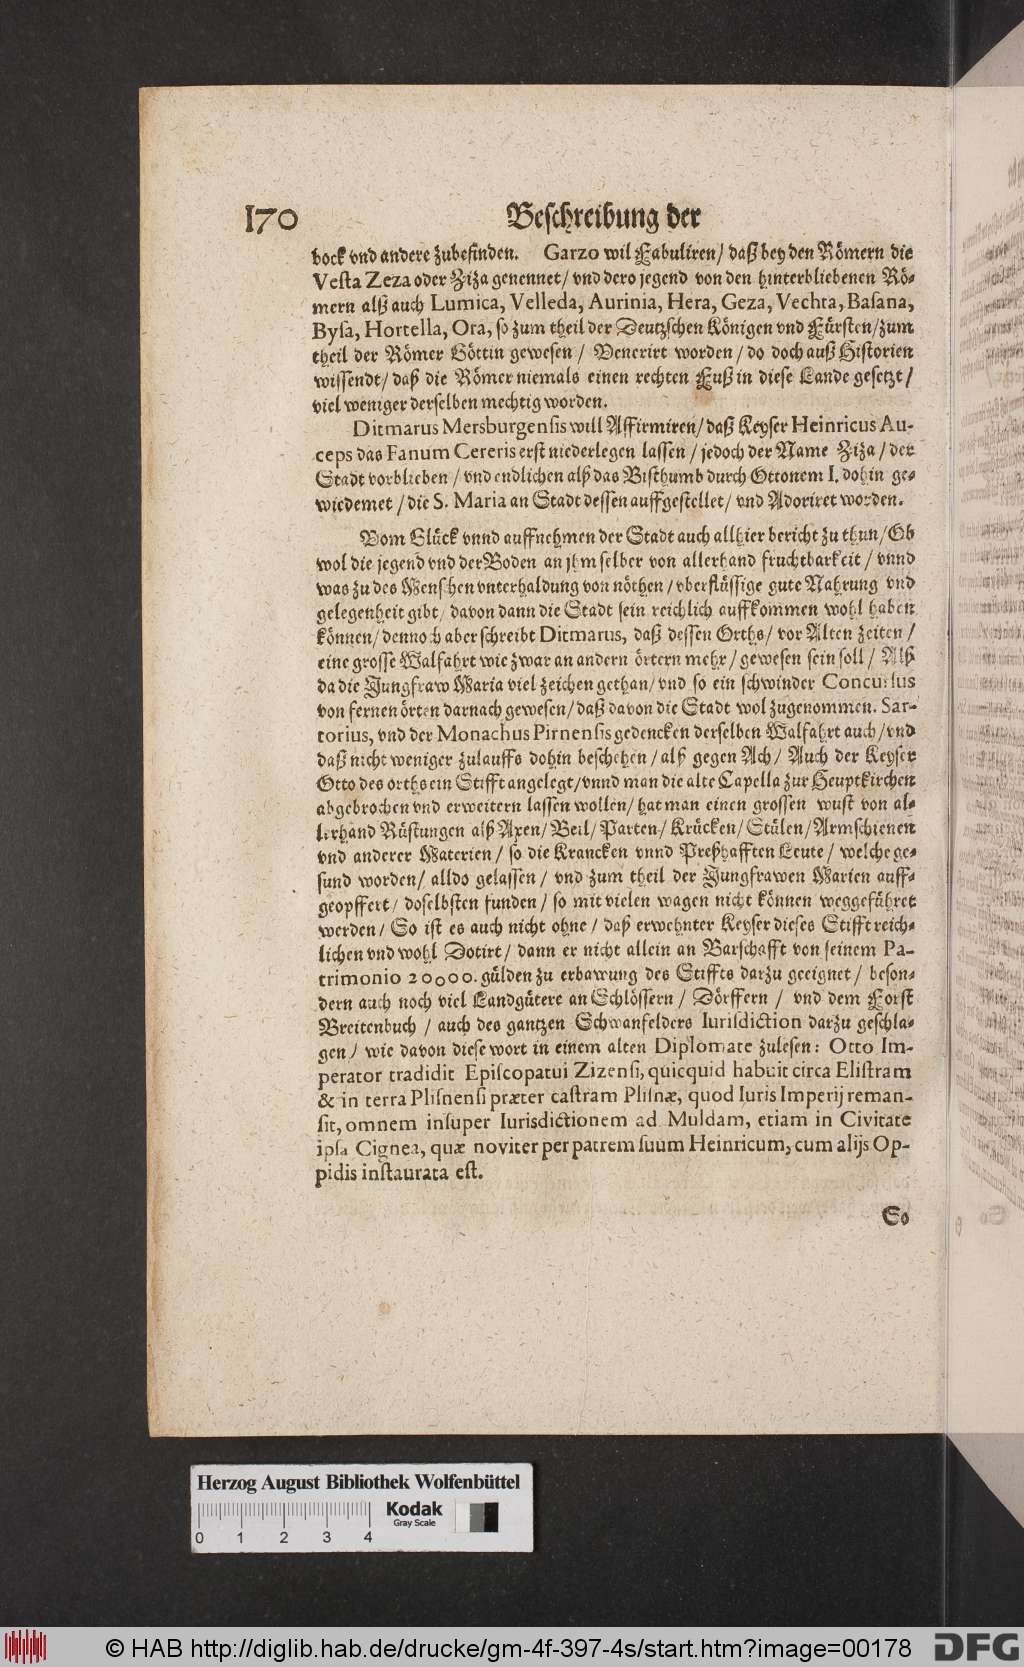 170 Beschreibung der
bock vnd andere zubefinden. Garzo wil Fabuliren/ daß bey den Römern die
Vesta Zeza oder Ziza genennet/ vnd dero jegend von den hinterbliebenen Rö-
mern alß auch Lumica, Velleda, Aurinia, Hera, Geza, Vechta, Basana,
Bysa, Hortella, Ora, so zum theil der Deutzschen Königen vnd Fürsten/ zum
theil der Römer Göttin gewesen/ Venerirt worden/ do doch auß Historien
wissendt/ daß die Römer niemals einen rechten Fuß in diese Lande gesetzt/
viel weniger derselben mechtig worden.
Ditmarus Mersburgensis will Affirmiren/ daß Keyser Heinricus Au-
ceps das Fanum Cereris erst niederlegen lassen/ jedoch der Name Ziza/ der
Stadt vorblieben/ vnd endlichen alß das Bisthumb durch Ottonem I. dohin ge-
wiedemet/ die S. Maria an Stadt dessen auffgestellet/ vnd Adoriret worden.
Vom Glück vnnd auffnehmen der Stadt auch allhier bericht zu thun/ Ob
wol die jegend vnd der Boden an jhm selber von allerhand fruchtbarkeit/ vnnd
was zu des Menschen vnterhaldung von nöthen/ vberflüssige gute Nahrung vnd
gelegenheit gibt/ davon dann die Stadt sein reichlich auffkommen wohl haben
können/ dennoch aber schreibt Ditmarus, daß dessen Orths/ vor Alten zeiten/
eine grosse Walfahrt wie zwar an andern örtern mehr/ gewesen sein soll/ Alß
da die Jungfraw Maria viel zeichen gethan/ vnd so ein schwinder Concursus
von fernen örten darnach gewesen/ daß davon die Stadt wol zugenommen. Sar-
torius, vnd der Monachus Pirnensis gedencken derselben Walfahrt auch/ vnd
daß nicht weniger zulauffs dohin beschehen/ alß gegen Ach/ Auch der Keyser
Otto des orths ein Stifft angelegt/ vnnd man die alte Capella zur Heuptkirchen
abgebrochen vnd erweitern lassen wollen/ hat man einen grossen wust von al-
lerhand Rüstungen alß Axen/ Beil/ Parten/ Krücken/ Stülen/ Armschienen
vnd anderer Materien/ so die Krancken vnnd Preßhafften Leute/ welche ge-
sund worden/ alldo gelassen/ vnd zum theil der Jungfrawen Marien auff-
geopffert/ doselbsten funden/ so mit vielen wagen nicht können weggeführet
werden/ So ist es auch nicht ohne/ daß erwehnter Keyser dieses Stifft reich-
lichen vnd wohl Dotirt/ dann er nicht allein an Barschafft von seinem Pa-
trimonio 20000. gülden zu erbawung des Stiffts darzu geeignet/ beson-
dern auch noch viel Landgütere an Schlössern/ Dörffern/ vnd dem Forst
Breitenbuch/ auch des gantzen Schwanfelders Iurisdiction darzu geschla-
gen/ wie davon diese wort in einem alten Diplomate zulesen: Otto Im-
perator tradidit Episcopatui Zizensi, quicquid habuit circa Elistram
& in terra Plisnensi præter castram Plisnæ, quod Iuris Imperij reman-
sit, omnem insuper Iurisdictionem ad Muldam, etiam in Civitate
ipsa Cignea, quæ noviter per patrem suum Heinricum, cum alijs Op-
pidis instaurata est.
So
Herzog August Bibliothek Wolfenbüttel
Kodak
Gray Scale
0 1 2 3 4
© HAB http://diglib.hab.de/drucke/gm-4f-397-4s/start.htm?image=00178
DFG